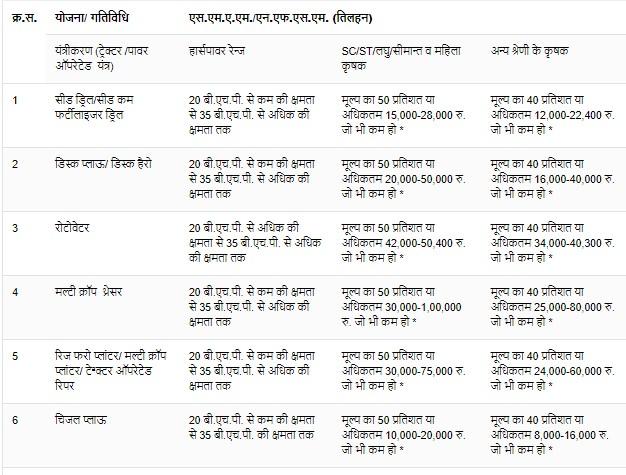 क्र.स. योजना/ गतिविधि एस.एम.ए.एम./एन.एफ.एस.एम. (तिलहन)
यंत्रीकरण (ट्रेक्टर /पावर ऑपरेटेड यंत्र)
हार्सपावर रेन्ज
SC/ST/लघु/सीमान्त व महिला
कृषक
अन्य श्रेणी के कृषक
1
सीड ड्रिल/सीड कम
फर्टीलाइजर ड्रिल
20 बी.एच.पी. से कम की क्षमता
से 35 बी.एच.पी. से अधिक की
क्षमता तक
मूल्य का 50 प्रतिशत या
अधिकतम 15,000-28,000 रु.
जो भी कम हो *
मूल्य का 40 प्रतिशत या
अधिकतम 12,000-22,400 रु.
जो भी कम हो *
2
डिस्क प्लाऊ/ डिस्क हैरो
20 बी.एच.पी. से कम की क्षमता
से 35 बी.एच.पी. से अधिक की
क्षमता तक
मूल्य का 50 प्रतिशत या
अधिकतम 20,000-50,000 रु.
जो भी कम हो *
मूल्य का 40 प्रतिशत या
अधिकतम 16,000-40,000 रु.
जो भी कम हो *
3
रोटोवेटर
20 बी.एच.पी. से अधिक की
क्षमता से 35 बी.एच.पी. से अधिक
की क्षमता तक
मूल्य का 50 प्रतिशत या
अधिकतम 42,000-50,400 रु.
जो भी कम हो *
मूल्य का 40 प्रतिशत या
अधिकतम 34,000-40,300 रु.
जो भी कम हो *
4
मल्टी क्रॉप थ्रेसर
20 बी.एच.पी. से कम की क्षमता
से 35 बी.एच.पी. से अधिक की
क्षमता तक
मूल्य का 50 प्रतिशत या
अधिकतम 30,000-1,00,000
रु. जो भी कम हो *
मूल्य का 40 प्रतिशत या
अधिकतम 25,000-80,000 रु.
जो भी कम हो *
5
रिज फरो प्लांटर/ मल्टी क्रॉप
प्लांटर/ टेªक्टर ऑपरेटेड
रिपर
20 बी.एच.पी. से कम की क्षमता
से 35 बी.एच.पी. से अधिक की
क्षमता तक
मूल्य का 50 प्रतिशत या
अधिकतम 30,000-75,000 रु.
जो भी कम हो *
मूल्य का 40 प्रतिशत या
अधिकतम 24,000-60,000 रु.
जो भी कम हो *
6
चिजल प्लाऊ
20 बी.एच.पी. से कम की क्षमता
से 35 बी.एच.पी. की क्षमता तक
मूल्य का 50 प्रतिशत या
अधिकतम 10,000-20,000 रु.
जो भी कम हो *
मूल्य का 40 प्रतिशत या
अधिकतम 8,000-16,000 रु.
जो भी कम हो *